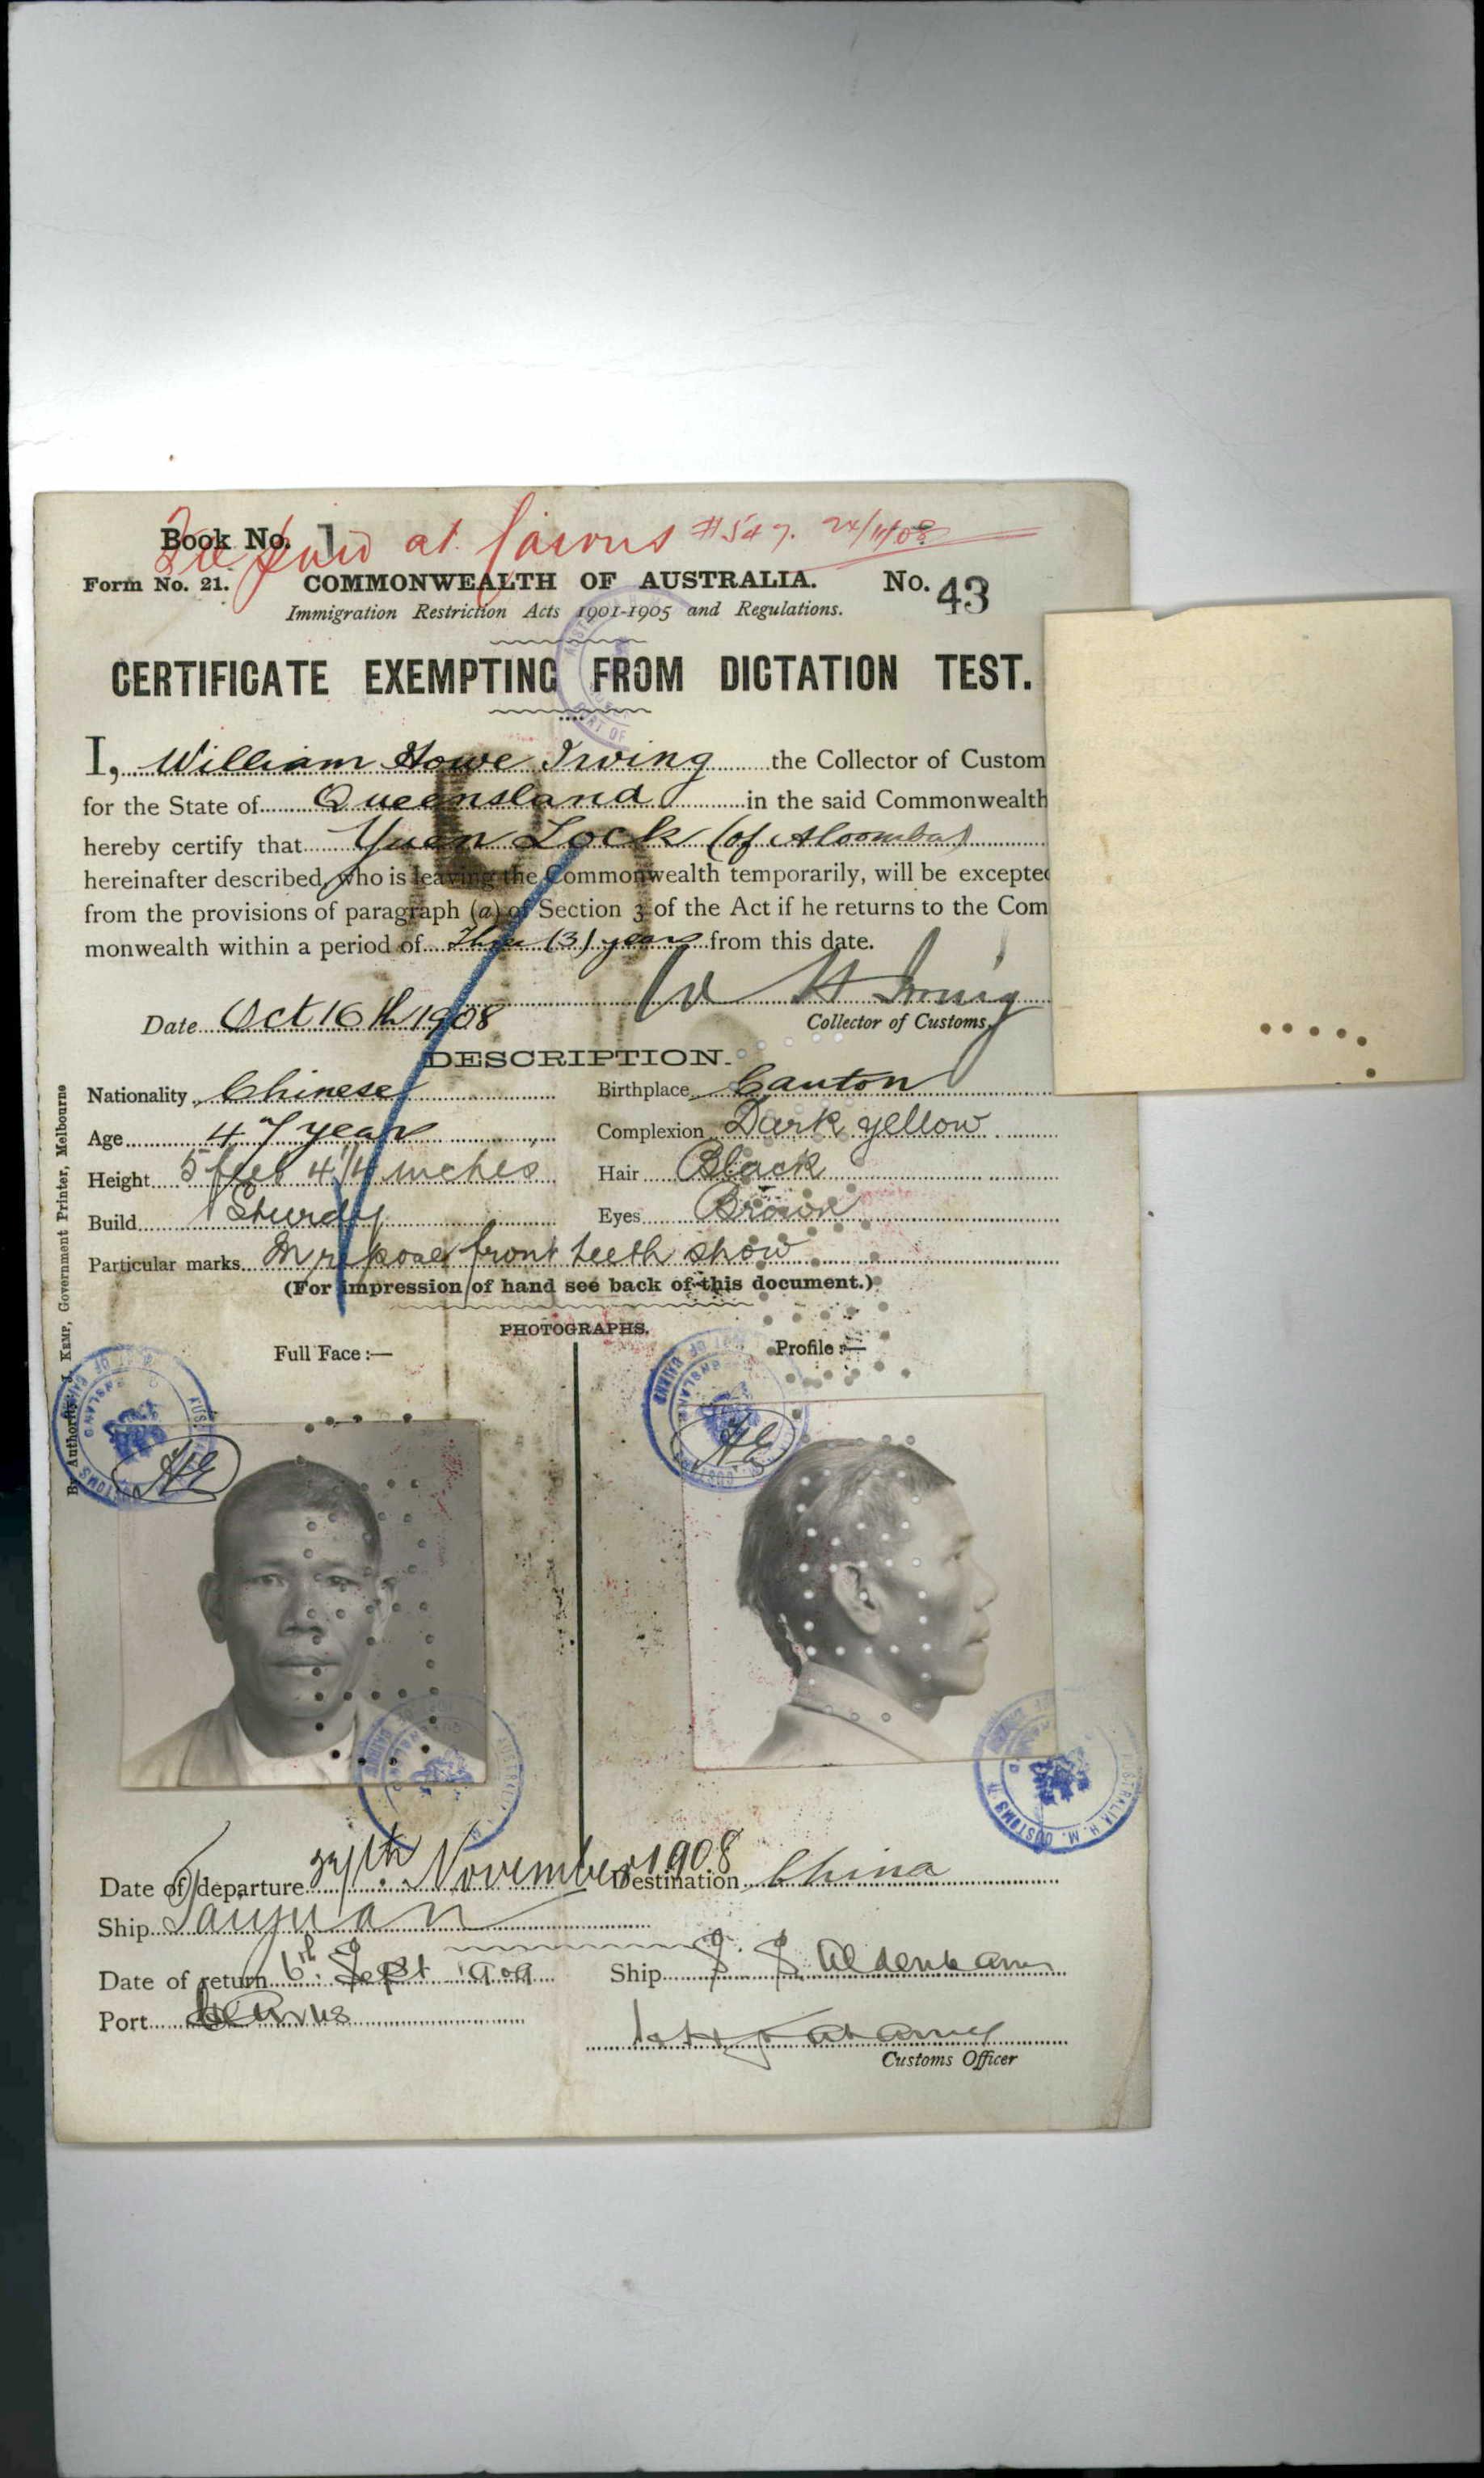 Book No. 1
Fee paid at Cairns #547. 24/11/08
Form No. 21. COMMONWEALTH OF AUSTRALIA. No. 43
Immigration Restriction Acts 1901-1905 and Regulations.
CERTIFICATE EXEMPTING FROM DICTATION TEST.
I, William Howe Irving the Collector of Custom
for the State of Queensland in the said Commonwealth
hereby certify that Yuen Lock (of Aloomba)
hereinafter described, who is leaving the Commonwealth temporarily, will be excepted
from the provisions of paragraph (a) of Section 3 of the Act if he returns to the Com
monwealth within a period of Three (3) years from this date.
W H Irving
Date Oct 16th 1908 Collector of Customs,
DESCRIPTION.
Nationality Chinese Birthplace Canton
Age 47 years Complexion Dark yellow
Height 5 feet 4 1/4 inches Hair Black
Build Sturdy Eyes Brown
Particular marks In repose front teeth show
(For impression of hand see back of this document.)
PHOTOGRAPHS.
Full Face :— Profile :—
HE HE
By Authority: J. KEMP, Government Printer, Melbourne
Date of departure November 1908 Destination China
Ship Taiyuan
Date of return 6th Sept 1909 Ship S. S. Aldenham
Port Cairns
Customs Officer